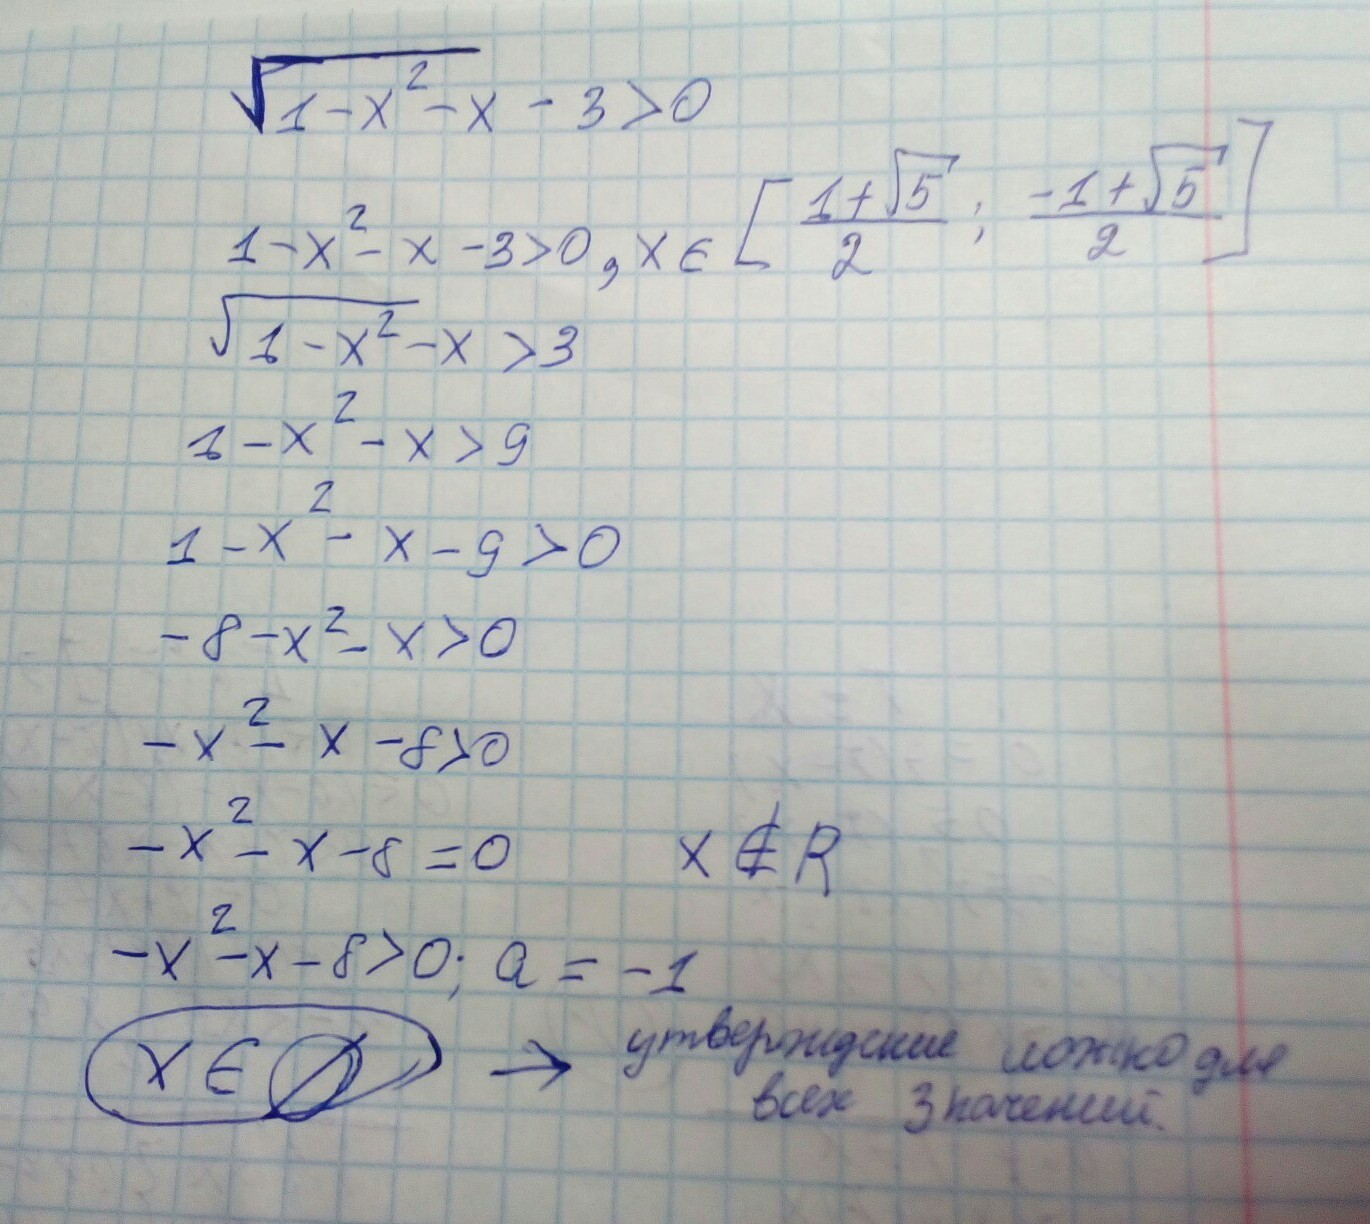 √1-x²-x - 3>0
1-x²-x-3>0, x∈[1+√5/2; -1+√5/2]
√1-x²-x>3
1-x²-x>9
1-x²-x-9>0
-8-x²-x>0
-x²-x-8>0
-x²-x-8=0 x∉R
-x²-x-8>0; a=-1
x∈∅ → утверждение ложно для
всех значений.